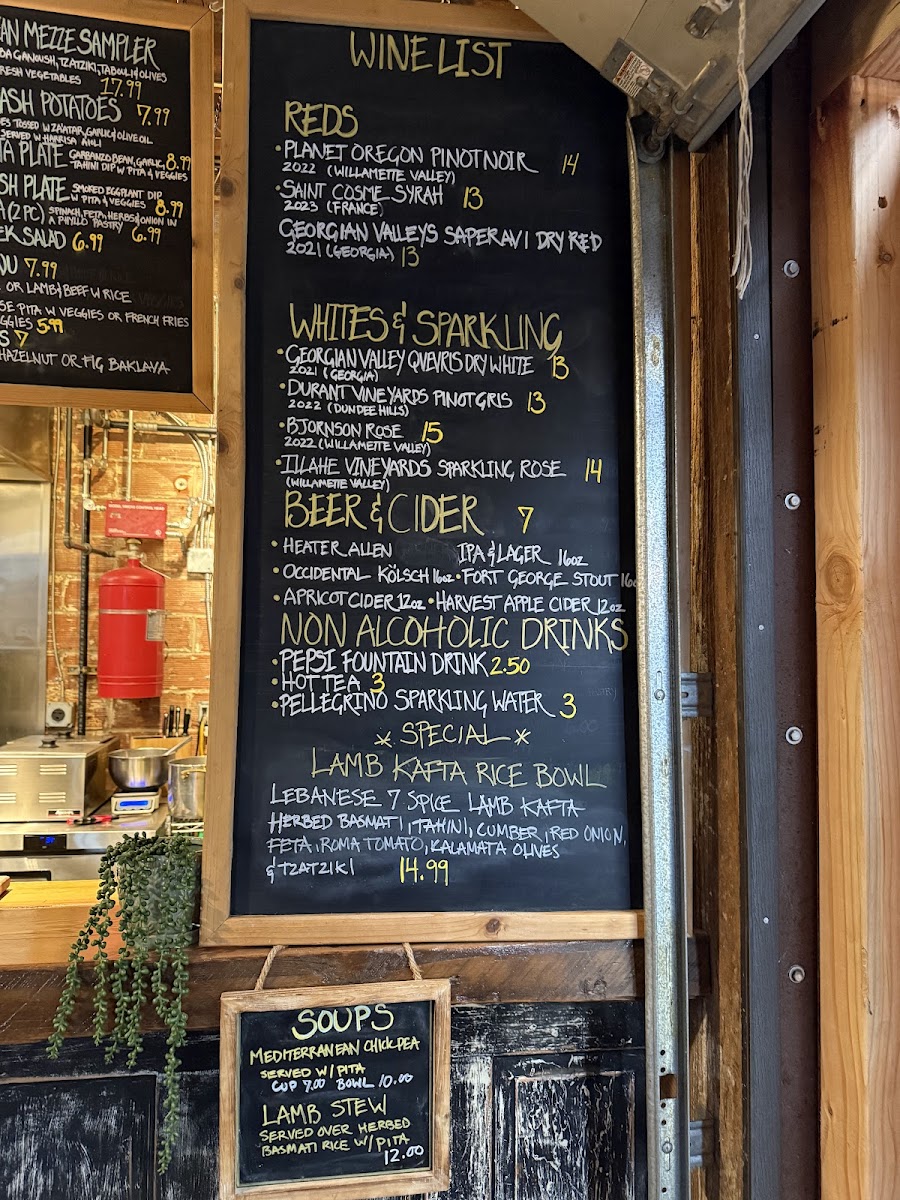 AN MEZZE SAMPLER
DA GANOUSH, TZATZIKI, TABOULI & OLIVES
RESH VEGETABLES 17.99
ASH POTATOES 7.99
ES TOSSED W ZA'ATAR, GARLIC & OLIVE OIL
SERVED W HARRISA AIOLI
TA PLATE GARBANZO BEAN, GARLIC, 8.99
TAHINI DIP W PITA & VEGGIES
SH PLATE SMOKED EGGPLANT DIP
W PITA & VEGGIES 8.99
A (2 PC) SPINACH, FETA, HERBS & ONION IN
A PHYLLO PASTRY 6.99
EK SALAD 6.99
OU 7.99
OR LAMB & BEEF W RICE
SE PITA W VEGGIES OR FRENCH FRIES
GGIES 5.99
S 7
HAZELNUT OR FIG BAKLAVA
WINE LIST
REDS
• PLANET OREGON PINOT NOIR 14
2022 (WILLAMETTE VALLEY)
• SAINT COSME SYRAH 13
2023 (FRANCE)
GEORGIAN VALLEYS SAPERAVI DRY RED
2021 (GEORGIA) 13
WHITES & SPARKLING
• GEORGIAN VALLEY QVEVRIS DRY WHITE 13
2021 (GEORGIA)
• DURANT VINEYARDS PINOT GRIS 13
2022 (DUNDEE HILLS)
• BJORNSON ROSE 15
2022 (WILLAMETTE VALLEY)
• ILLAHE VINEYARDS SPARKLING ROSE 14
(WILLAMETTE VALLEY)
BEER & CIDER 7
• HEATER ALLEN IPA & LAGER 16oz
• OCCIDENTAL KÖLSCH 16oz • FORT GEORGE STOUT 16o
• APRICOT CIDER 12oz • HARVEST APPLE CIDER 12oz
NON ALCOHOLIC DRINKS
• PEPSI FOUNTAIN DRINK 2.50
• HOT TEA 3
• PELLEGRINO SPARKLING WATER 3
* SPECIAL *
LAMB KAFTA RICE BOWL
LEBANESE 7 SPICE LAMB KAFTA
HERBED BASMATI, TAHINI, CUMBER, RED ONION,
FETA, ROMA TOMATO, KALAMATA OLIVES
& TZATZIKI 14.99
SOUPS
MEDITERRANEAN CHICKPEA
SERVED W/ PITA
CUP 7.00 BOWL 10.00
LAMB STEW
SERVED OVER HERBED
BASMATI RICE W/ PITA
12.00